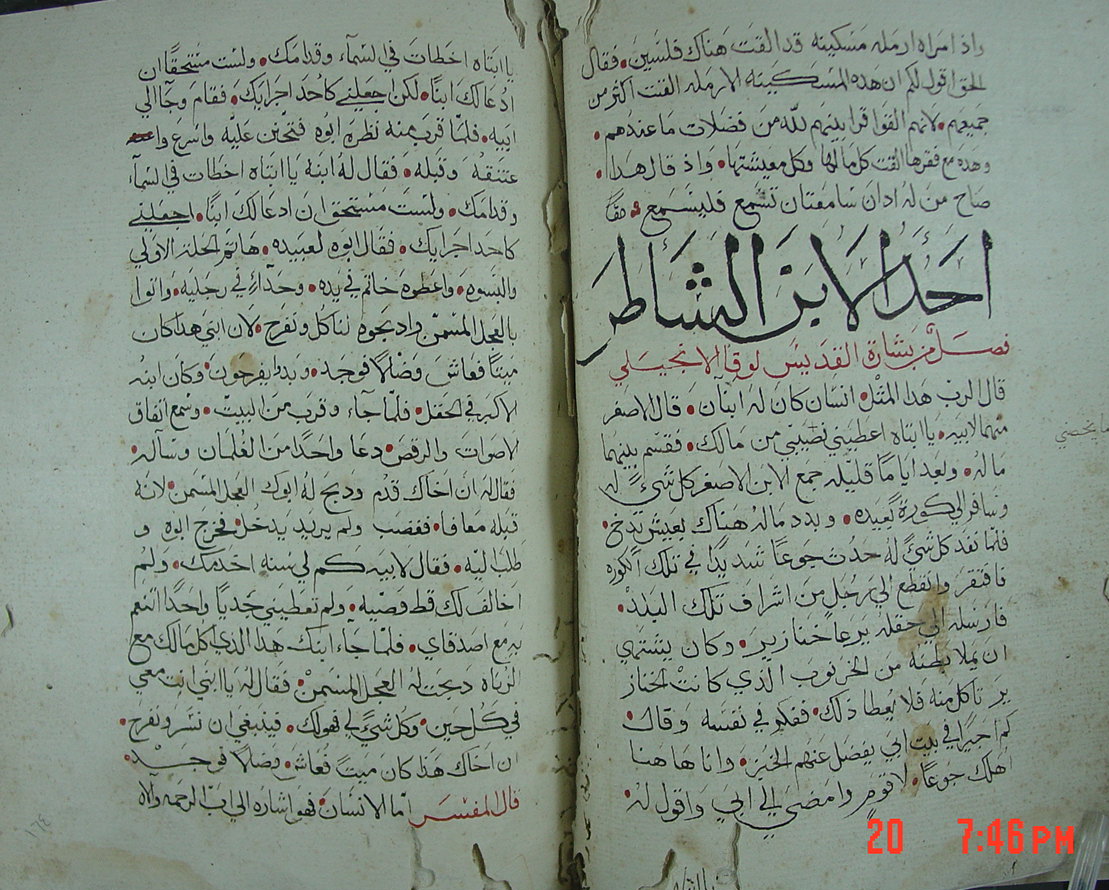 واذ امراه ارمله مسكينه قد القت هناك فلسين. فقال
الحق اقول لكم ان هذه المسكينه الارمله القت اكثر من
جميعهم. لانهم القوا قرابينهم لله من فضلات ما عندهم.
وهذه مع فقرها القت كل مالها وكل معيشتها. واذ قال هذا.
صاح من له اذان سامعتان تسمع فليسمع
احد الابن الشاطر
فصل من بشارة القديس لوقا الانجيلي
قال الرب هذا المثل. انسان كان له ابنان. قال الاصغر
منهما لابيه. يا ابتاه اعطيني نصيبي من مالك. فقسم بينهما
ماله. وبعد اياما قليله جمع الابن الاصغر كل شيء له
وسافر الي كورة بعيده. وبدد ماله هناك بعيش بذخ.
فلما نفد كل شيء له حدث جوعا شديدا في تلك الكوره
فافتقر وانقطع الي رجل من اشراف تلك البلد.
فارسله الي حقله يرعا خنازير. وكان يشتهي
ان يملا بطنه من الخرنوب الذي كانت الخناز
ير تاكل منه فلا يعطا ذلك. ففكر في نفسه وقال
كم اجيرا في بيت ابي يفضل عنهم الخبز. وانا هاهنا
اهلك جوعا. اقوم وامضي الي ابي واقول له.
يا ابتاه اخطات في السماء وقدامك. ولست مستحقا ان
ادعا لك ابنا. لكن اجعلني كاحد اجرايك. فقام وجا الي
ابيه. فلما قرب منه نظره ابوه فتحنن عليه واسرع وا
عتنقه وقبله. فقال له ابنه يا ابتاه اخطات في السماء
وقدامك. ولست مستحق ان ادعا لك ابنا. اجعلني
كاحد اجرايك. فقال ابوه لعبيده. هاتم الحلة الاولي
والبسوه. واعطوه خاتم في يده. وحذاء في رجليه. واتوا
بالعجل المسمن واذبحوه لناكل ونفرح. لان ابني هذا كان
ميتا فعاش وضالا فوجد. وبدا يفرحون. وكان ابنه
الاكبر في الحقل. فلما جاء وقرب من البيت. وسمع اتفاق
الاصوات والرقص. دعا واحدا من الغلمان وساله.
فقال له ان اخاك قدم وذبح له ابوك العجل المسمن. لانه
قبله معافا. فغضب ولم يريد يدخل. فخرج ابوه و
طلب اليه. فقال لابيه كم لي سنه اخدمك. ولم
اخالف لك قط وصيه. ولم تعطيني جديا واحدا اتنعم
به مع اصدقاي. فلما جاء ابنك هذا الذي اكل مالك مع
الزناه ذبحت له العجل المسمن. فقال له يا ابني انت معي
في كل حين. وكل شيء لي فهو لك. فينبغي ان نسر ونفرح.
ان اخاك هذا كان ميتا فعاش. وضالا فوجد.
قال المفسر اما الانسان. فهو اشاره الي اب الرحمه واله
١٦٤
20 7:46 PM